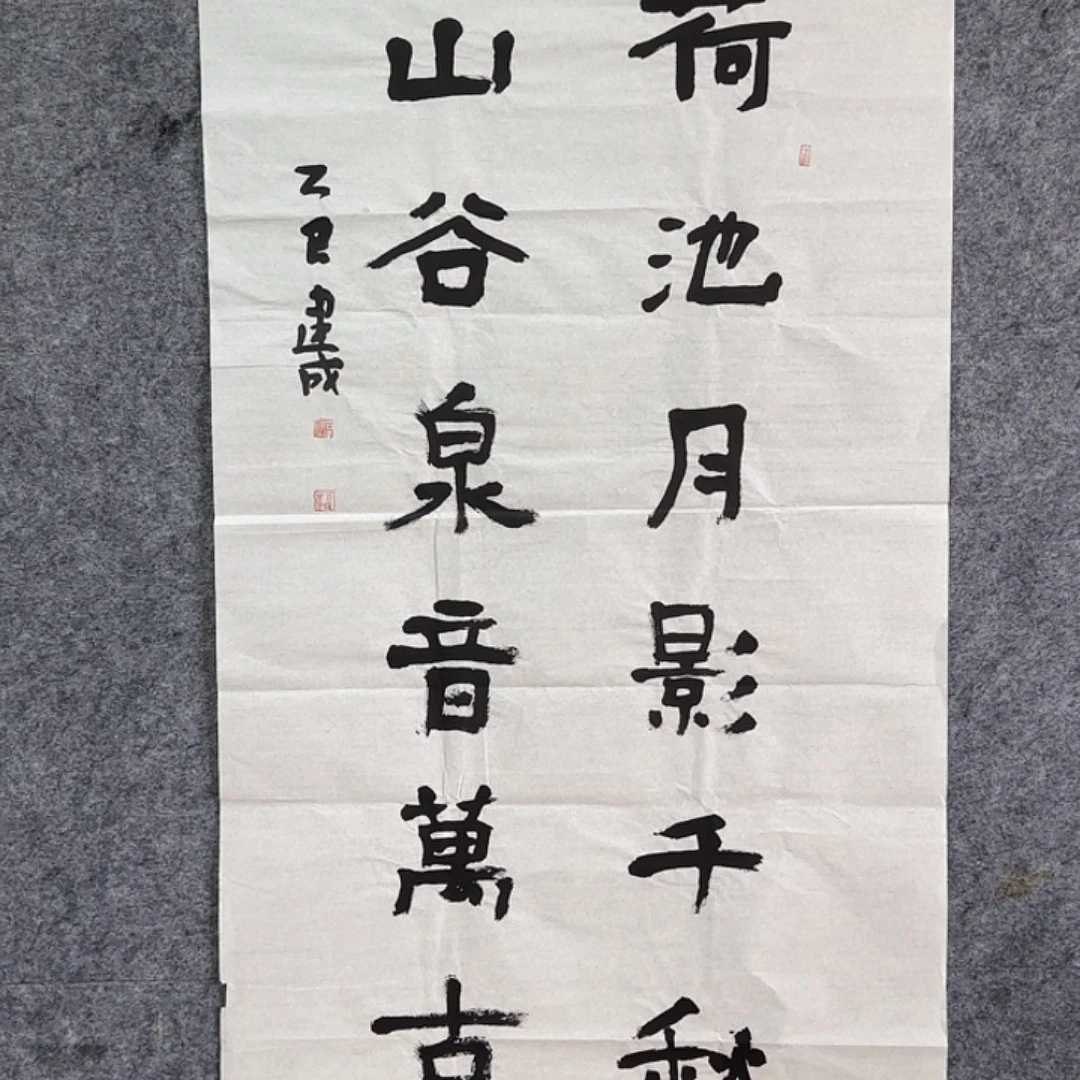 荷池月影千秋
山谷泉音萬古
乙巳建成